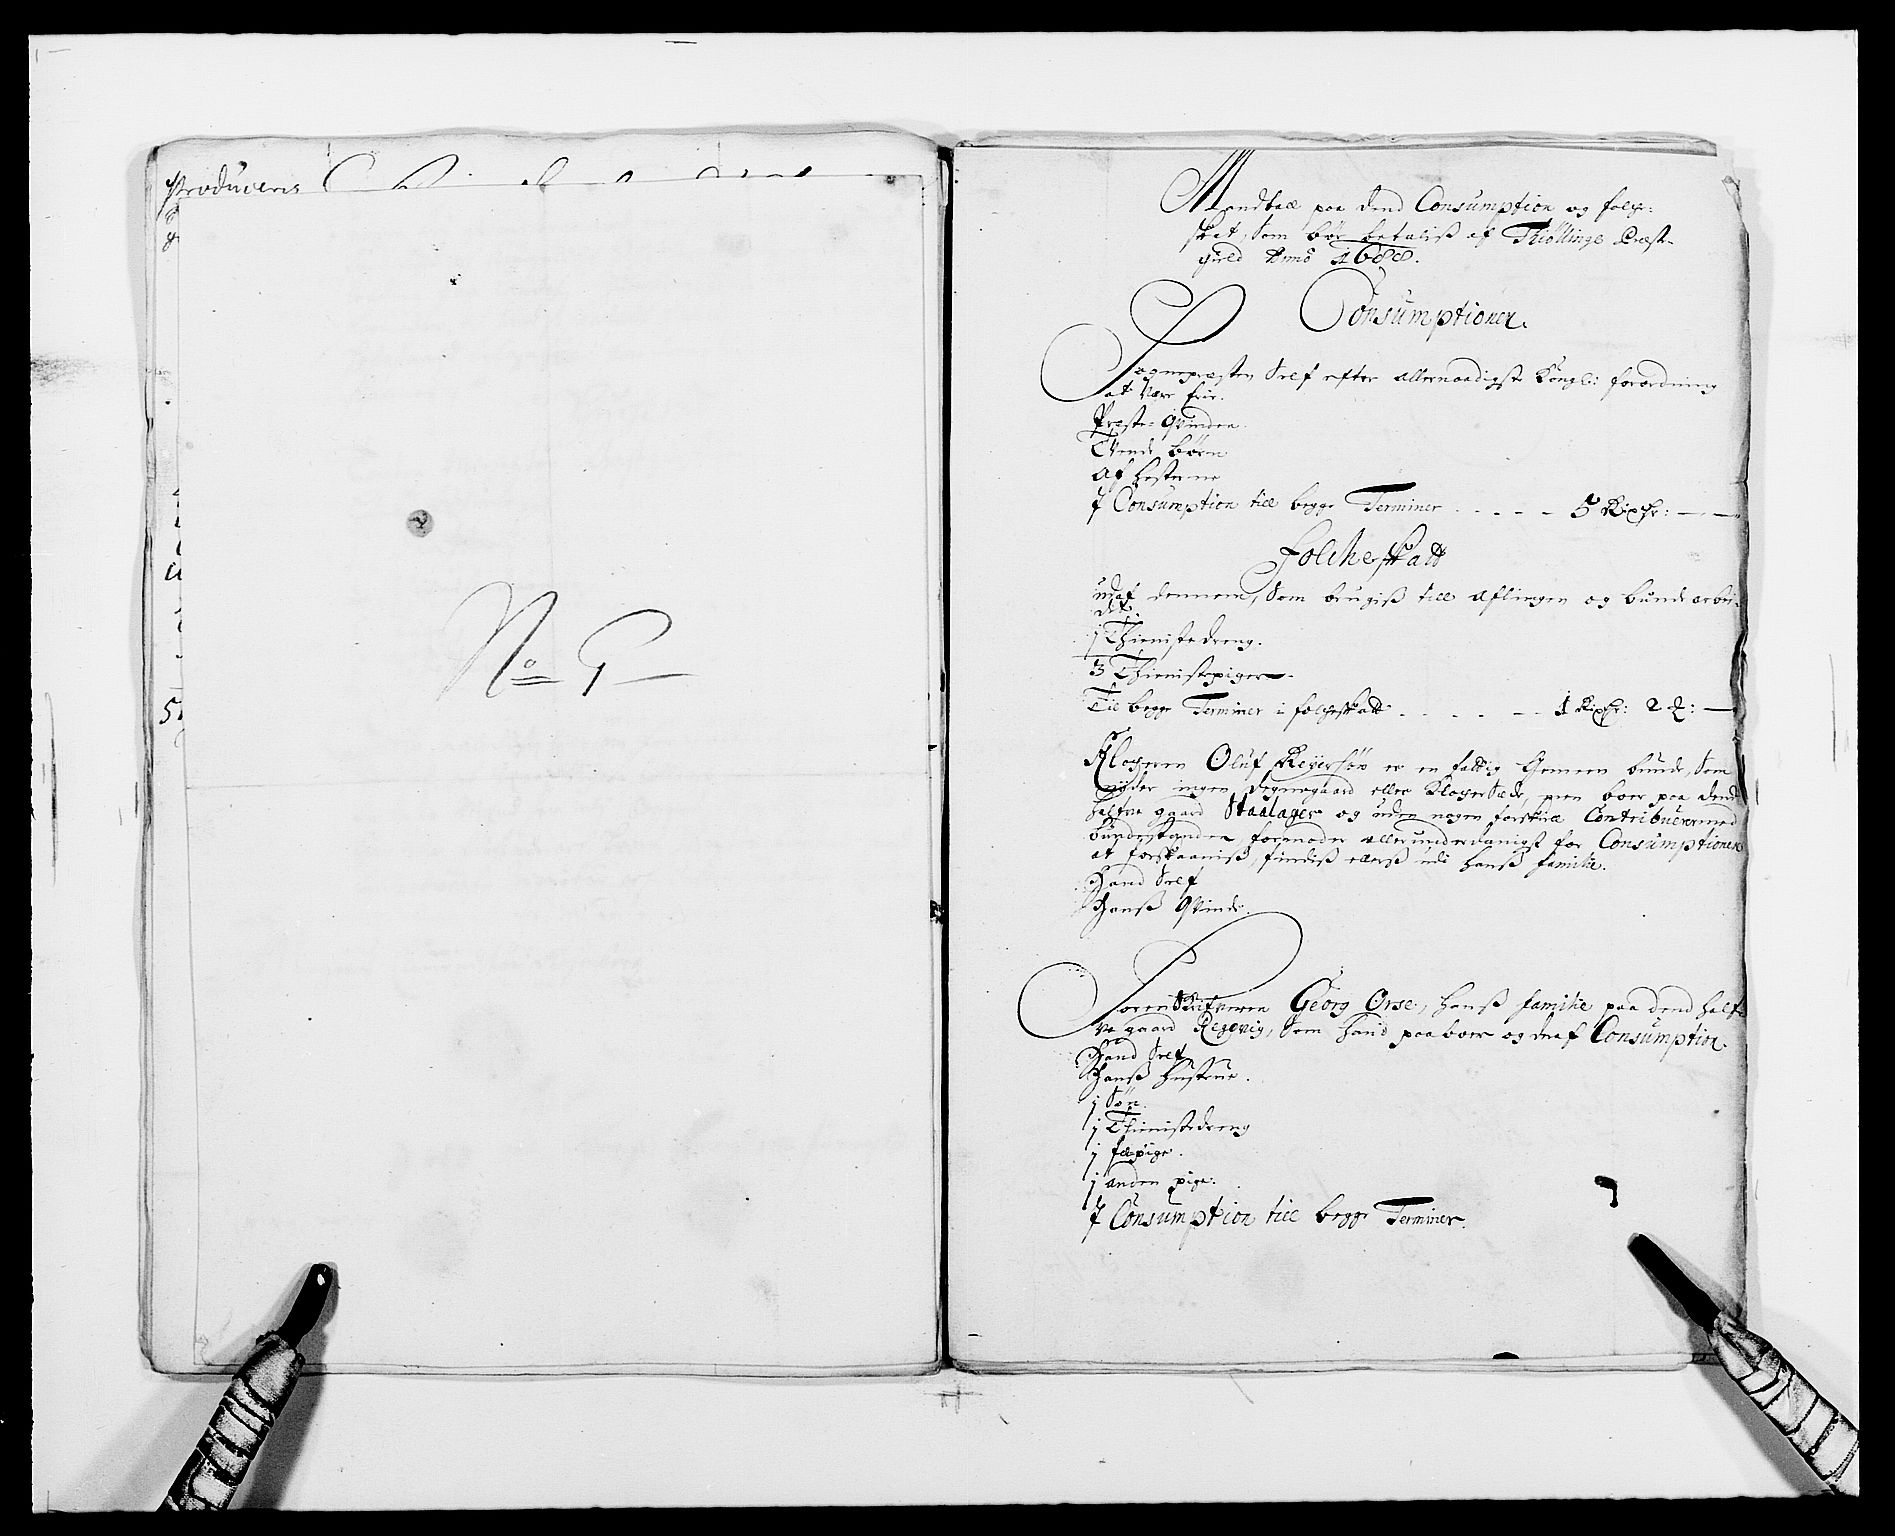 Produceris
No 9
Mandtal paa dend Consumption og folche-
skat, som bør betalis af Thiøllinge Præste-
gield Anno 1688.
Consumptionen.
Sognepræsten Self efter allernaadigste Kongl: forordning
at være frie.
Præste-Qvinden.
Tvende børn
Af hestene
I Consumption till begge Terminer . . . . . 5 Rixdr: — —
Folcheskatt
udaf dennem, som brugiß till aflingen og bundearbei-
det.
1 Thienistedreng.
3 Thienistepiger.
Til begge Terminer i folcheskatt . . . . . 1 Rixdr: 2 : —
Klocheren Oluf Reyersøn er en fattig Gemeen bunde, som
nyder ingen degnegaard eller Klocher Sæde, men boer paa dend
halfve gaard Staalager og uden nogen forskiæl Contribuerer med
bundestanden formoder allerunderdanigst for Consumptionen
at forskaaniß, findiß ellerß udi hanß familie.
Hand Self
Hanß Qvinde.
Sorenskrifveren Georg Orse, hanß familie paa dend half-
ve gaard Regevig, som hand paaboer og deraf Consumption.
Hand Self
Hanß hustrue.
1 Søn.
1 Thienistedreng
1 fæpige.
1 anden pige.
I Consumption till begge Terminer.